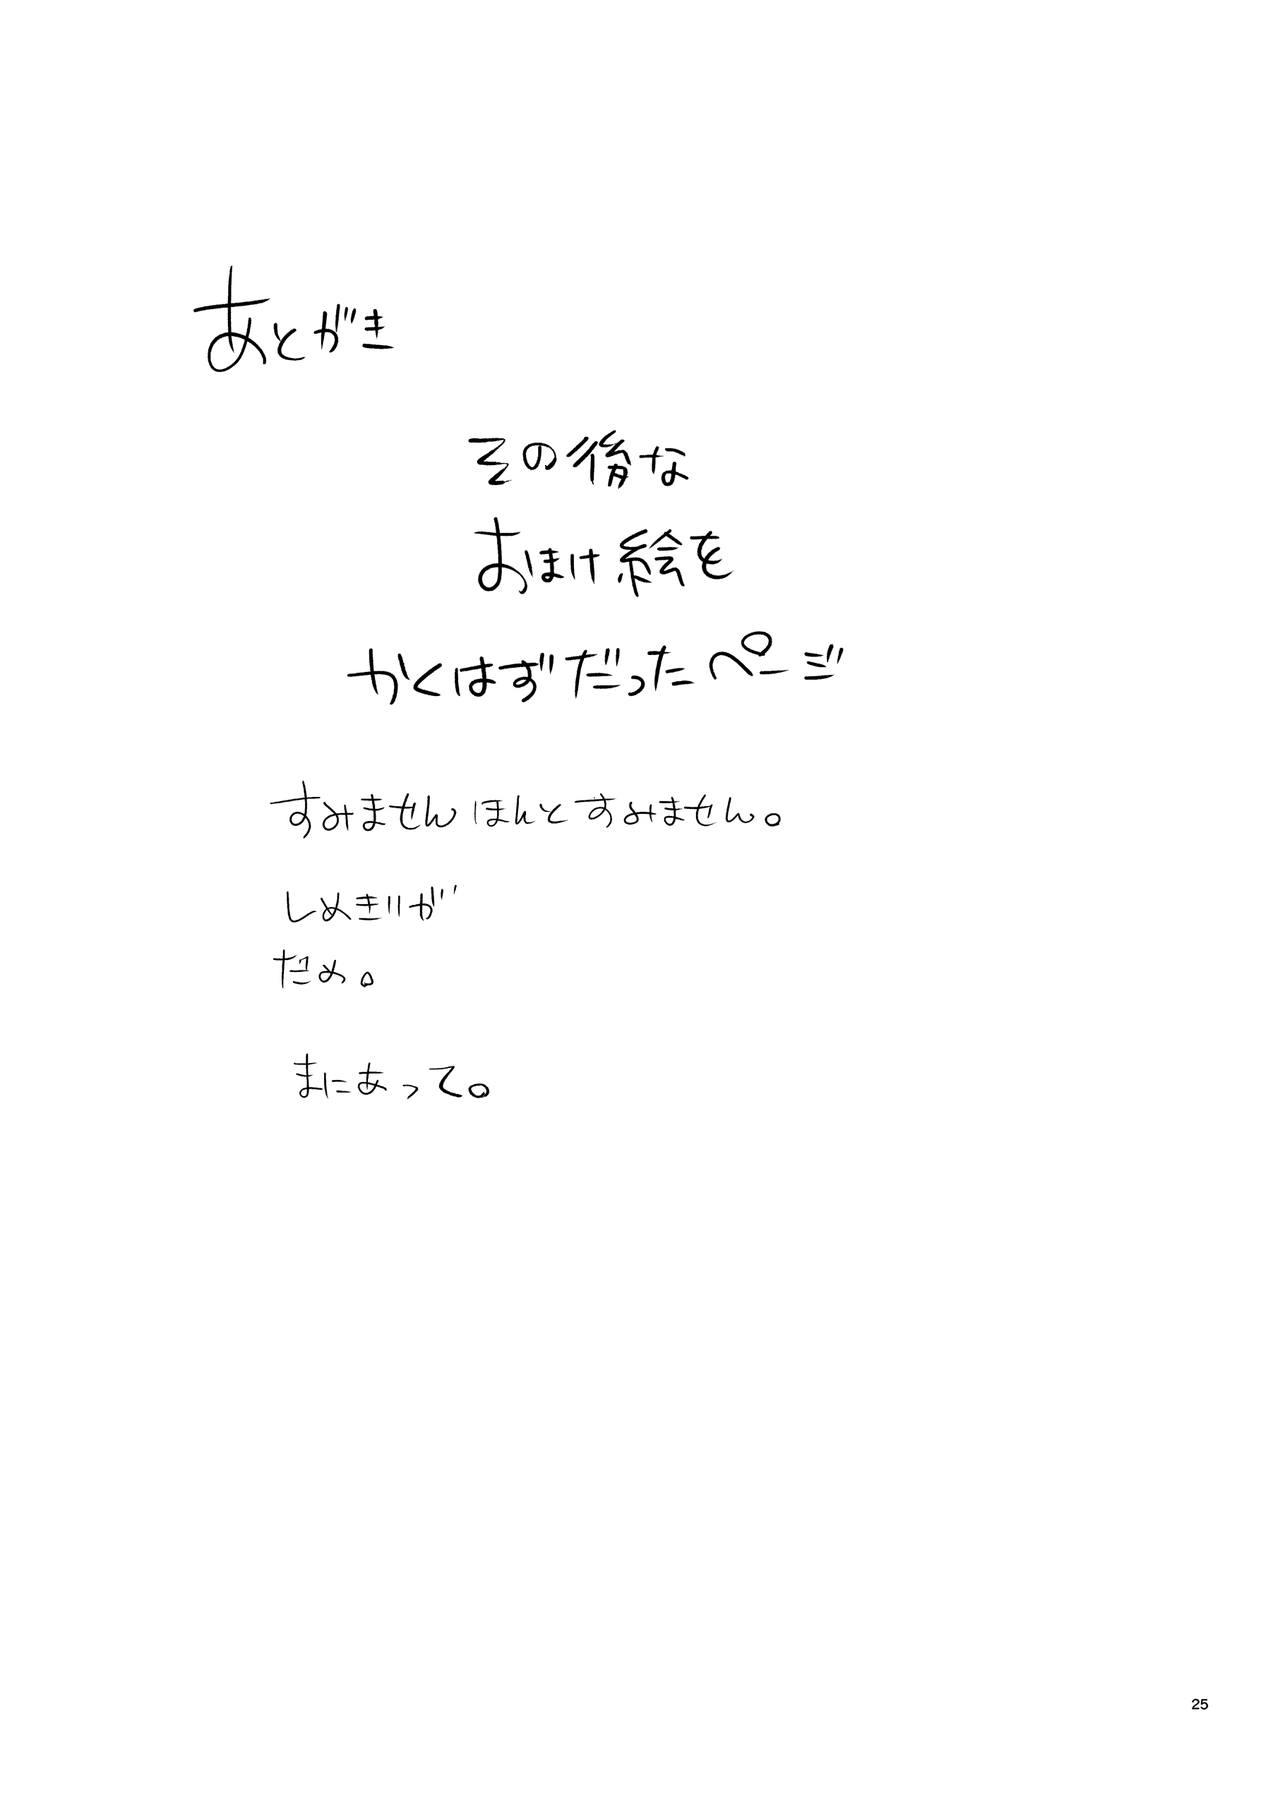 あとがき
その後な
おまけ絵を
かくはずだったページ
すみませんほんとすみません。
しめきりが
だめ。
まにあって。
25